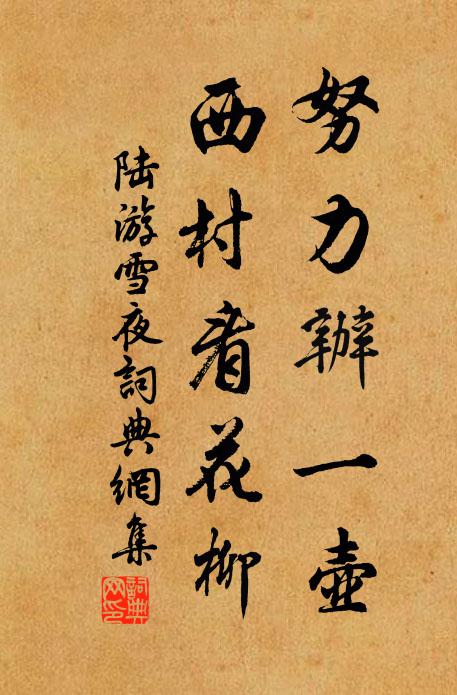 努力辦一壺
西村看花柳
陸游雪夜詞典網集
詞典网印